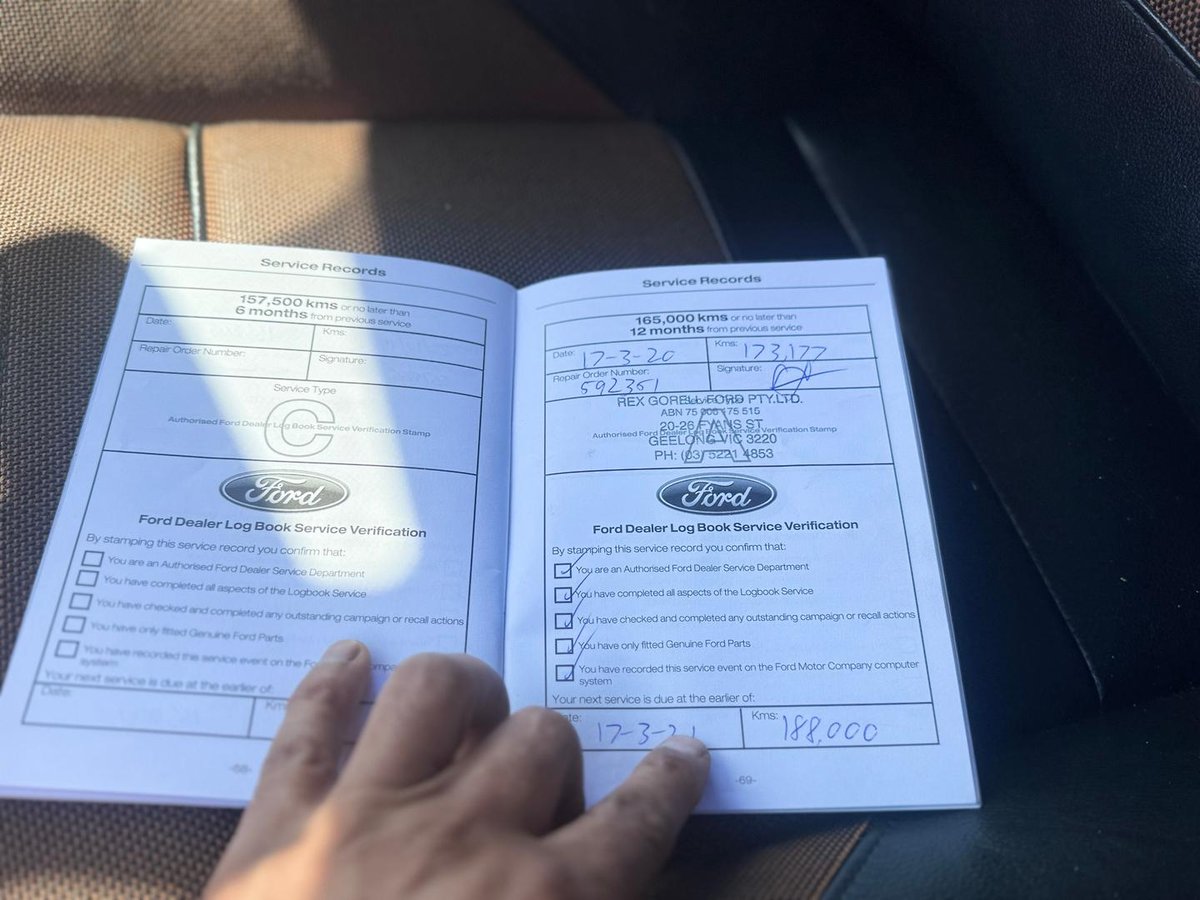 Service Records
157,500 kms or no later than
6 months from previous service
Date:
Kms:
Repair Order Number:
Signature:
Service Type
C
Authorised Ford Dealer Log Book Service Verification Stamp
Ford
Ford Dealer Log Book Service Verification
By stamping this service record you confirm that:
You are an Authorised Ford Dealer Service Department
You have completed all aspects of the Logbook Service
You have checked and completed any outstanding campaign or recall actions
You have only fitted Genuine Ford Parts
You have recorded this service event on the
system
Your next service is due at the earlier of:
Date:
-68-
Service Records
165,000 kms or no later than
12 months from previous service
Date: 17-3-20
Kms: 173,177
Repair Order Number:
592361
Signature:
REX GORELL FORD PTY.LTD.
ABN 75 005 175 515
20-26 FYANS ST
Authorised Ford Dealer Log Book Service Verification Stamp
GEELONG VIC 3220
PH: (03) 5221 4853
Ford
Ford Dealer Log Book Service Verification
By stamping this service record you confirm that:
You are an Authorised Ford Dealer Service Department
You have completed all aspects of the Logbook Service
You have checked and completed any outstanding campaign or recall actions
You have only fitted Genuine Ford Parts
You have recorded this service event on the Ford Motor Company computer
system
Your next service is due at the earlier of:
17-3-21
Kms: 188,000
-69-